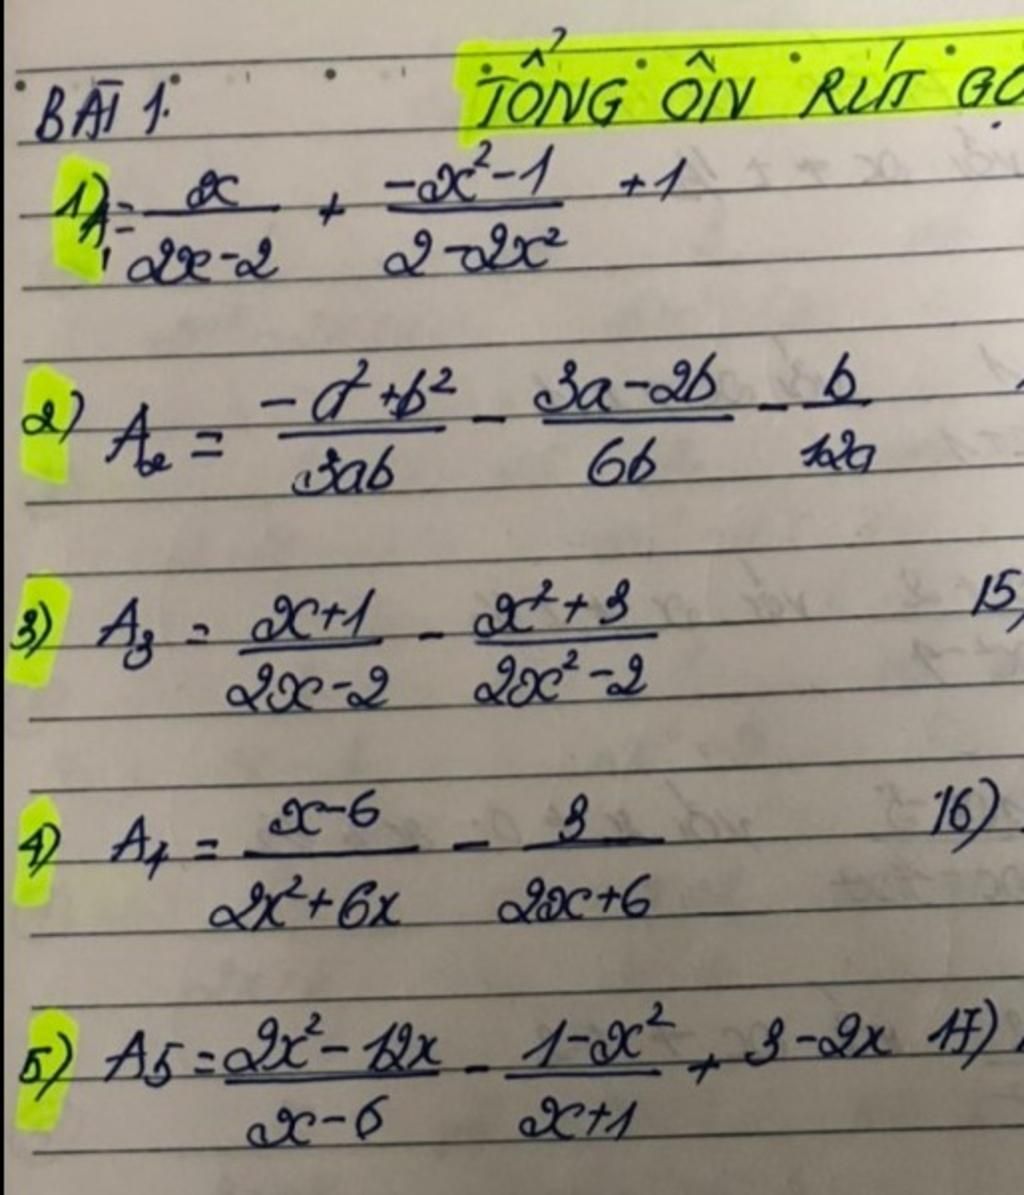 BÀI 1. TỔNG ÔN RÚT GỌ
1) A₁ = x/(2x-2) + (-x²-1)/(2-2x²) + 1
2) A₂ = (-a²+b²)/3ab - (3a-2b)/6b - b/12a
3) A₃ = (x+1)/(2x-2) - (x²+3)/(2x²-2) 15)
4) A₄ = (x-6)/(2x²+6x) - 3/(2x+6) 16)
5) A5 = (2x²-12x)/(x-6) - (1-x²)/(x+1) + 3-2x 17)